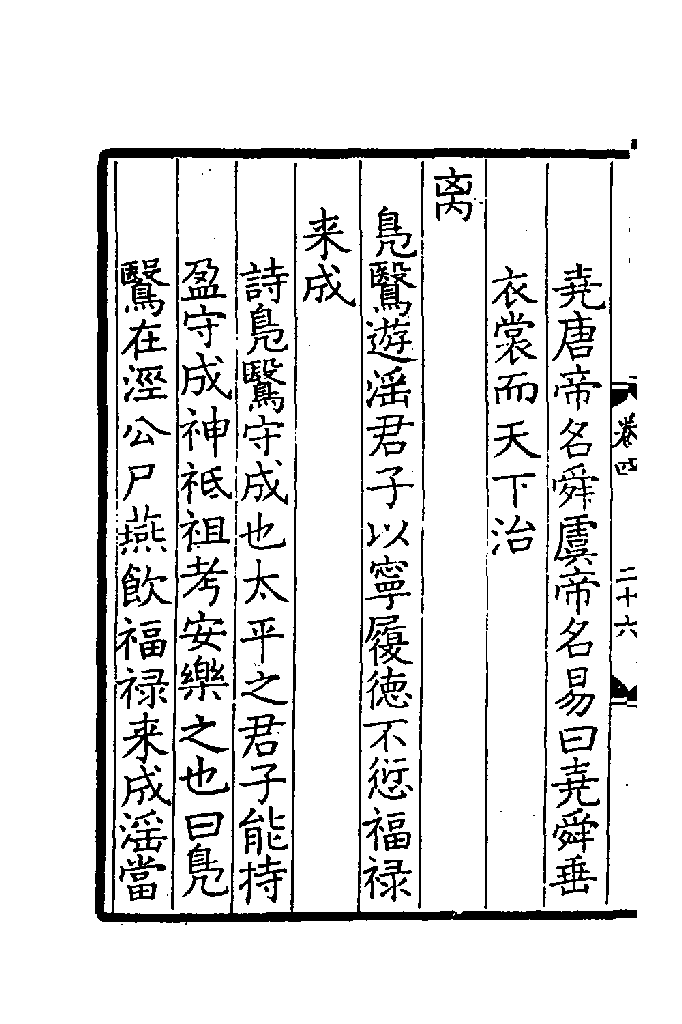 卷四　二十六
堯唐帝名舜虞帝名易曰堯舜垂
衣裳而天下治
离
鳧鷖遊滛君子以寧履徳不愆福禄
来成
詩鳧鷖守成也太平之君子能持
盈守成神祗祖考安樂之也曰鳧
鷖在涇公尸燕飲福禄来成滛當